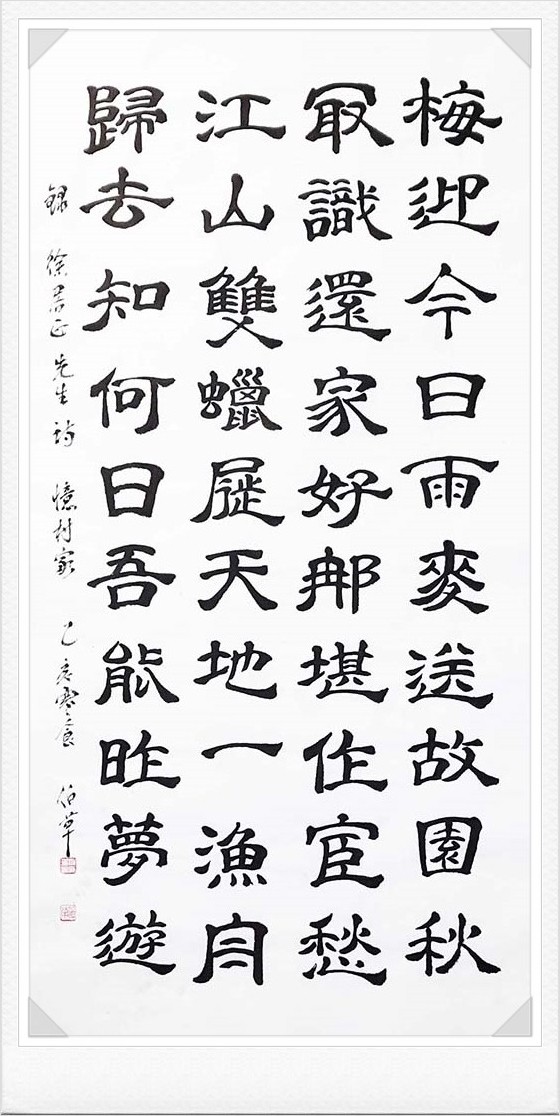 梅迎今日雨麥送故園秋
冣識還家好那堪作宦愁
江山雙蠟屐天地一漁舟
歸去知何日吾能昨夢遊
錄 徐居正 先生 詩 憶村家 亥寒食